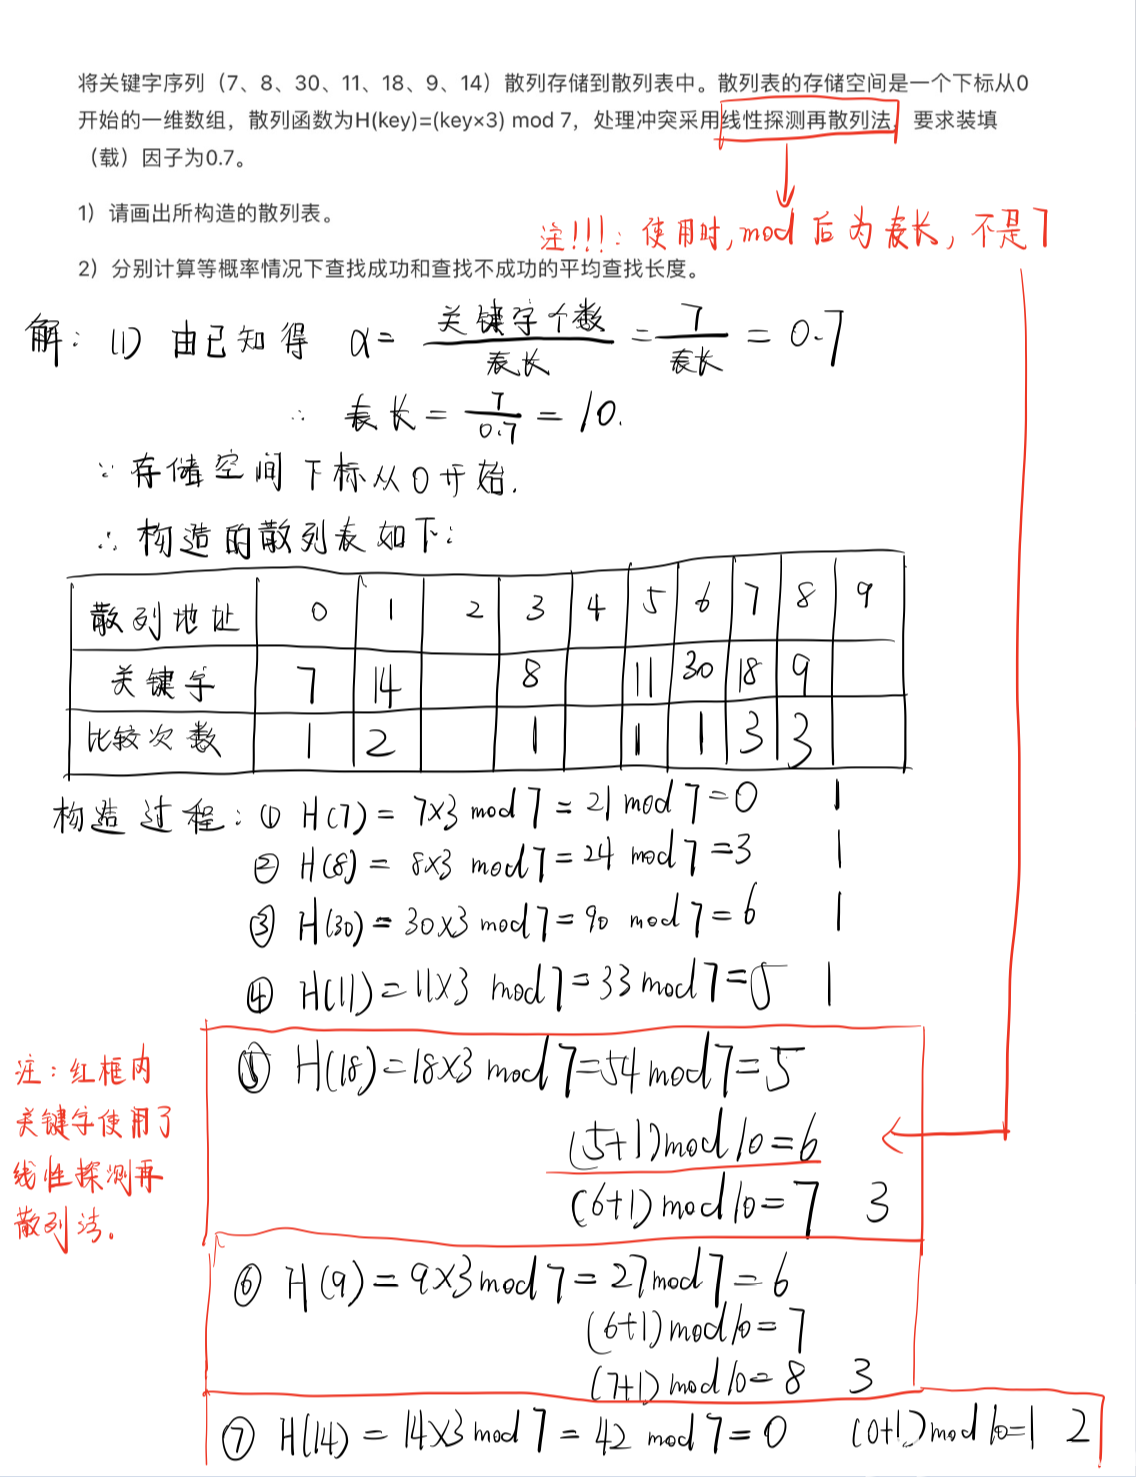 将关键字序列（7、8、30、11、18、9、14）散列存储到散列表中。散列表的存储空间是一个下标从0
开始的一维数组，散列函数为H(key)=(key×3) mod 7，处理冲突采用线性探测再散列法，要求装填
（载）因子为0.7。
1）请画出所构造的散列表。
注!!!：使用时,mod后为表长，不是7
2）分别计算等概率情况下查找成功和查找不成功的平均查找长度。
解：(1) 由已知得 α= 关键字个数/表长 = 7/表长 = 0.7
∴ 表长 = 7/0.7 = 10.
∵ 存储空间下标从0开始.
∴ 构造的散列表如下：
散列地址 0 1 2 3 4 5 6 7 8 9
关键字 7 14 8 11 30 18 9
比较次数 1 2 1 1 1 3 3
构造过程：① H(7) = 7×3 mod 7 = 21 mod 7 = 0 1
② H(8) = 8×3 mod 7 = 24 mod 7 = 3 1
③ H(30) = 30×3 mod 7 = 90 mod 7 = 6 1
④ H(11) = 11×3 mod 7 = 33 mod 7 = 5 1
⑤ H(18) = 18×3 mod 7 = 54 mod 7 = 5
(5+1) mod 10 = 6
(6+1) mod 10 = 7 3
注：红框内
关键字使用了
线性探测再
散列法.
⑥ H(9) = 9×3 mod 7 = 27 mod 7 = 6
(6+1) mod 10 = 7
(7+1) mod 10 = 8 3
⑦ H(14) = 14×3 mod 7 = 42 mod 7 = 0 (0+1) mod 10 = 1 2